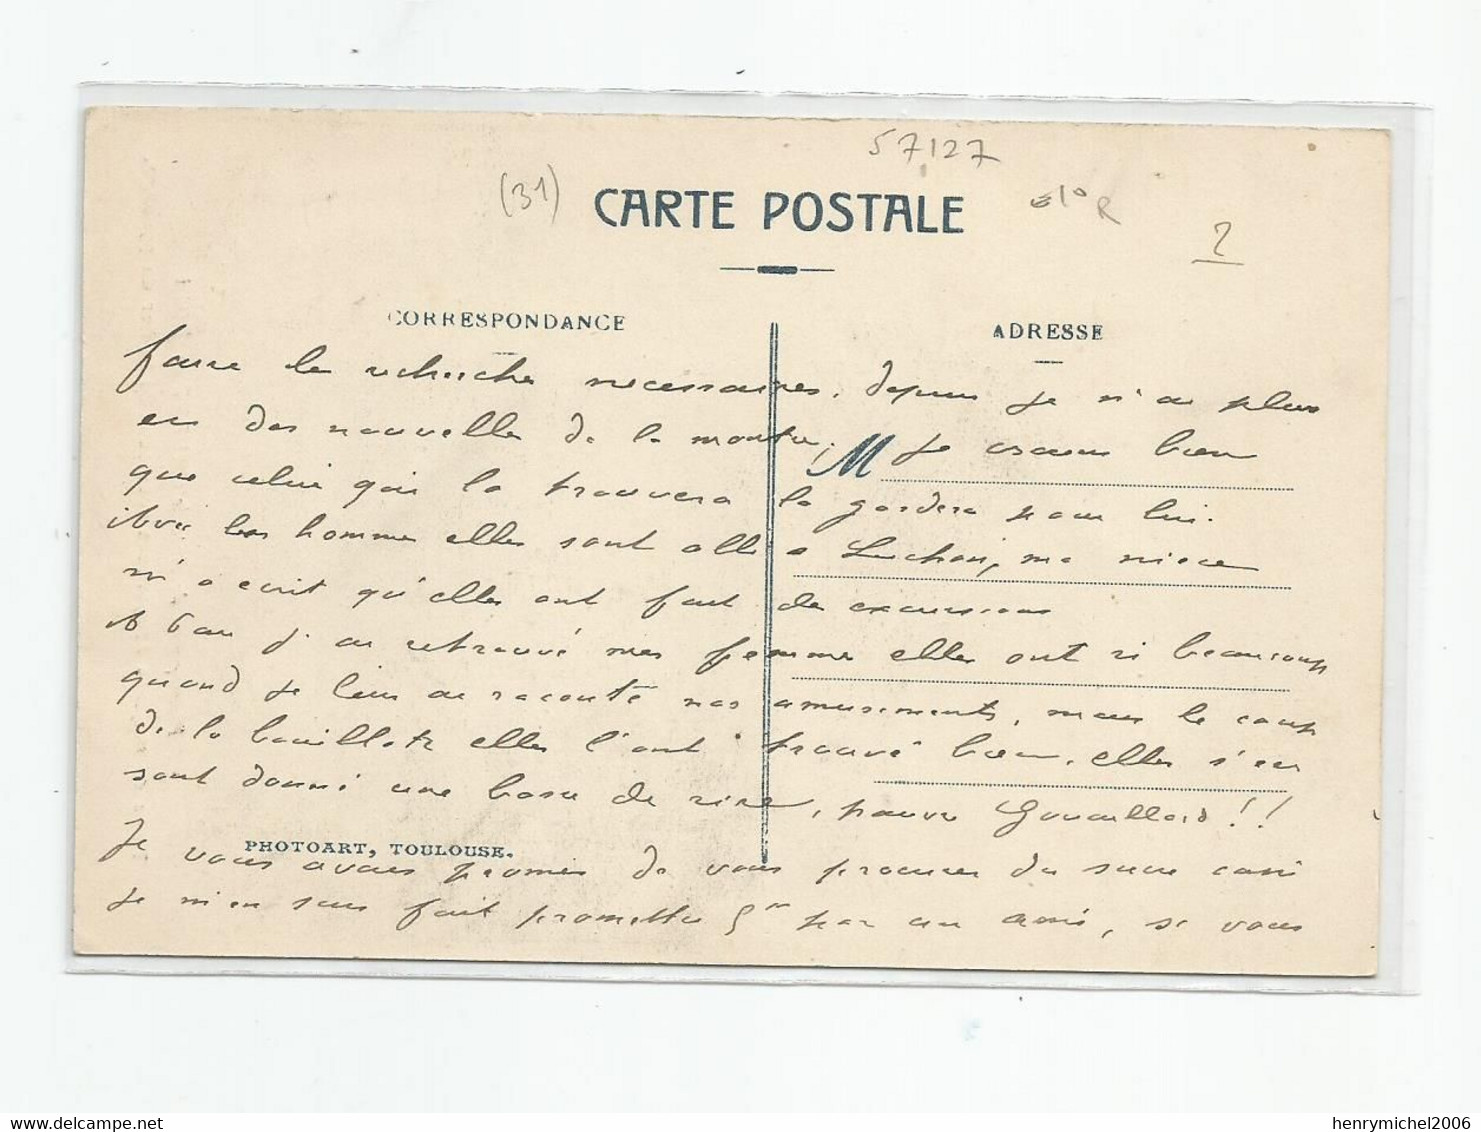 57127
(31)
CARTE POSTALE
R
2
CORRESPONDANCE
ADRESSE
faire les recherches nécessaires, depuis je n'ai plus
eu des nouvelles de la montre, Je crois bien
M
que celui qui la trouvera la gardera pour lui.
les hommes elles sont allé a Luchon, ma nièce
m'a écrit qu'elles ont fait des excursions
j'ai retrouvé mes femmes elles ont ri beaucoup
quand je leur ai raconté nos amusements, mais le coup
de la bouillotte elles l'ont trouvé bien, elles s'en
sont donné une bosse de rire, pauvre Gouaillard!!
PHOTOART, TOULOUSE.
Je vous avais promis de vous procurer du sucre aussi
je m'en suis fait promettre 5 par un ami, si vous
henrymichel2006